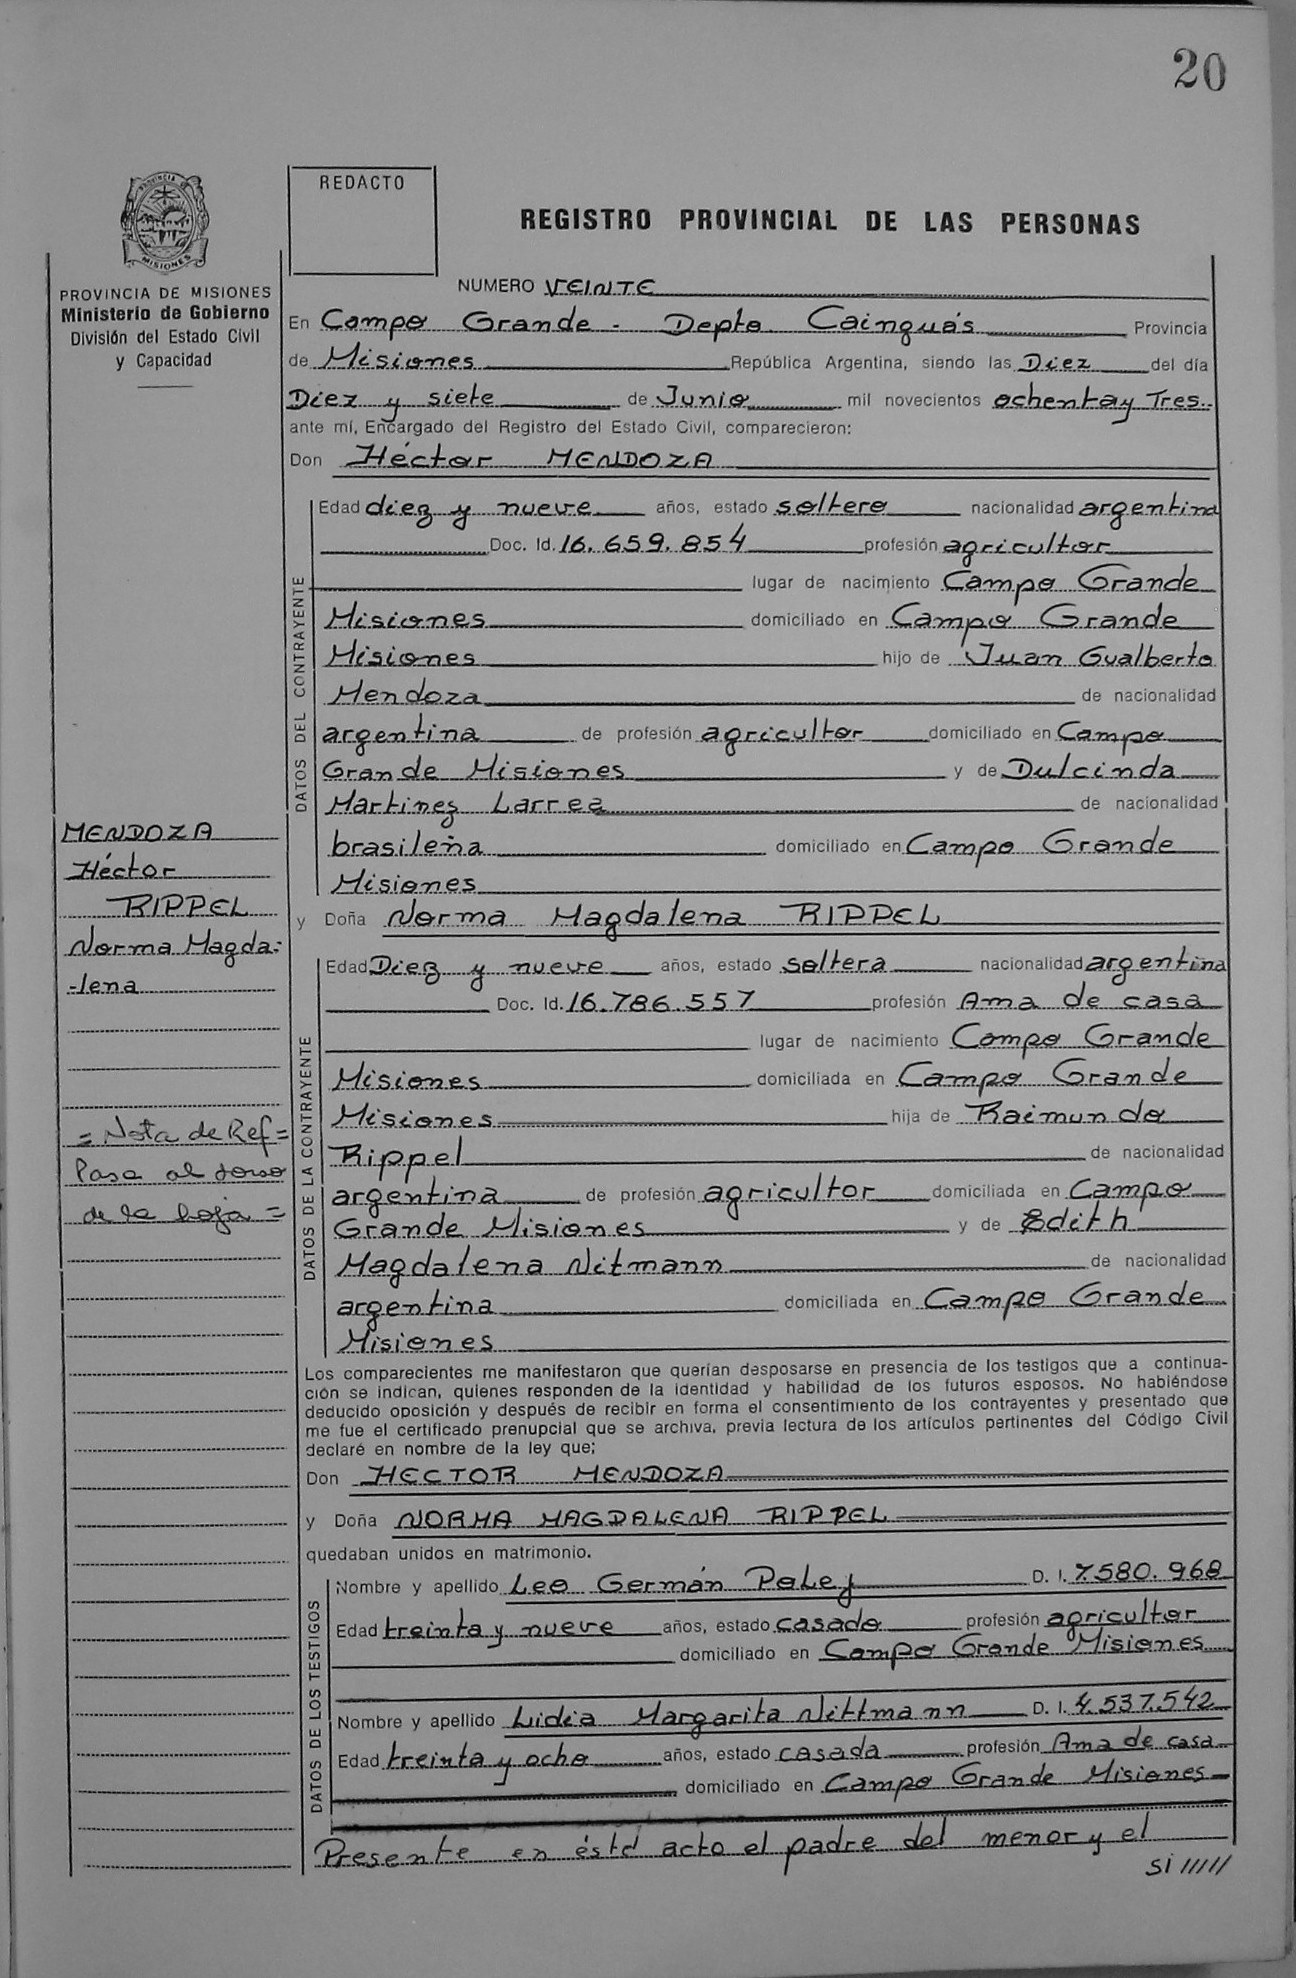 20
REDACTO
REGISTRO PROVINCIAL DE LAS PERSONAS
PROVINCIA DE MISIONES
Ministerio de Gobierno
División del Estado Civil
y Capacidad
NUMERO VEINTE
En Campo Grande - Depto. Cainguás Provincia
de Misiones República Argentina, siendo las Diez del día
Diez y siete de Junio mil novecientos ochenta y Tres.
ante mí, Encargado del Registro del Estado Civil, comparecieron:
Don Héctor MENDOZA
DATOS DEL CONTRAYENTE
Edad diez y nueve años, estado soltero nacionalidad argentina
Doc. Id. 16.659.854 profesión agricultor
lugar de nacimiento Campo Grande
Misiones domiciliado en Campo Grande
Misiones hijo de Juan Gualberto
Mendoza de nacionalidad
argentina de profesión agricultor domiciliado en Campo
Grande Misiones y de Dulcinda
Martinez Larrea de nacionalidad
brasileña domiciliado en Campo Grande
Misiones
MENDOZA
Héctor
RIPPEL
Norma Magda-
-lena
= Nota de Ref =
Pasa al dorso
de la hoja =
y Doña Norma Magdalena RIPPEL
DATOS DE LA CONTRAYENTE
Edad Diez y nueve años, estado soltera nacionalidad argentina
Doc. Id. 16.786.557 profesión Ama de casa
lugar de nacimiento Campo Grande
Misiones domiciliada en Campo Grande
Misiones hija de Raimundo
Rippel de nacionalidad
argentina de profesión agricultor domiciliada en Campo
Grande Misiones y de Edith
Magdalena Nitmann de nacionalidad
argentina domiciliada en Campo Grande
Misiones
Los comparecientes me manifestaron que querían desposarse en presencia de los testigos que a continua-
ción se indican, quienes responden de la identidad y habilidad de los futuros esposos. No habiéndose
deducido oposición y después de recibir en forma el consentimiento de los contrayentes y presentado que
me fue el certificado prenupcial que se archiva, previa lectura de los artículos pertinentes del Código Civil
declaré en nombre de la ley que;
Don HECTOR MENDOZA
y Doña NORMA MAGDALENA RIPPEL
quedaban unidos en matrimonio.
DATOS DE LOS TESTIGOS
Nombre y apellido Leo Germán Paley D. I. 7.580.968
Edad treinta y nueve años, estado casado profesión agricultor
domiciliado en Campo Grande Misiones
Nombre y apellido Lidia Margarita Nittmann D. I. 4.537.542
Edad treinta y ocho años, estado casada profesión Ama de casa
domiciliado en Campo Grande Misiones
Presente en ésta acto el padre del menor y el
si /////